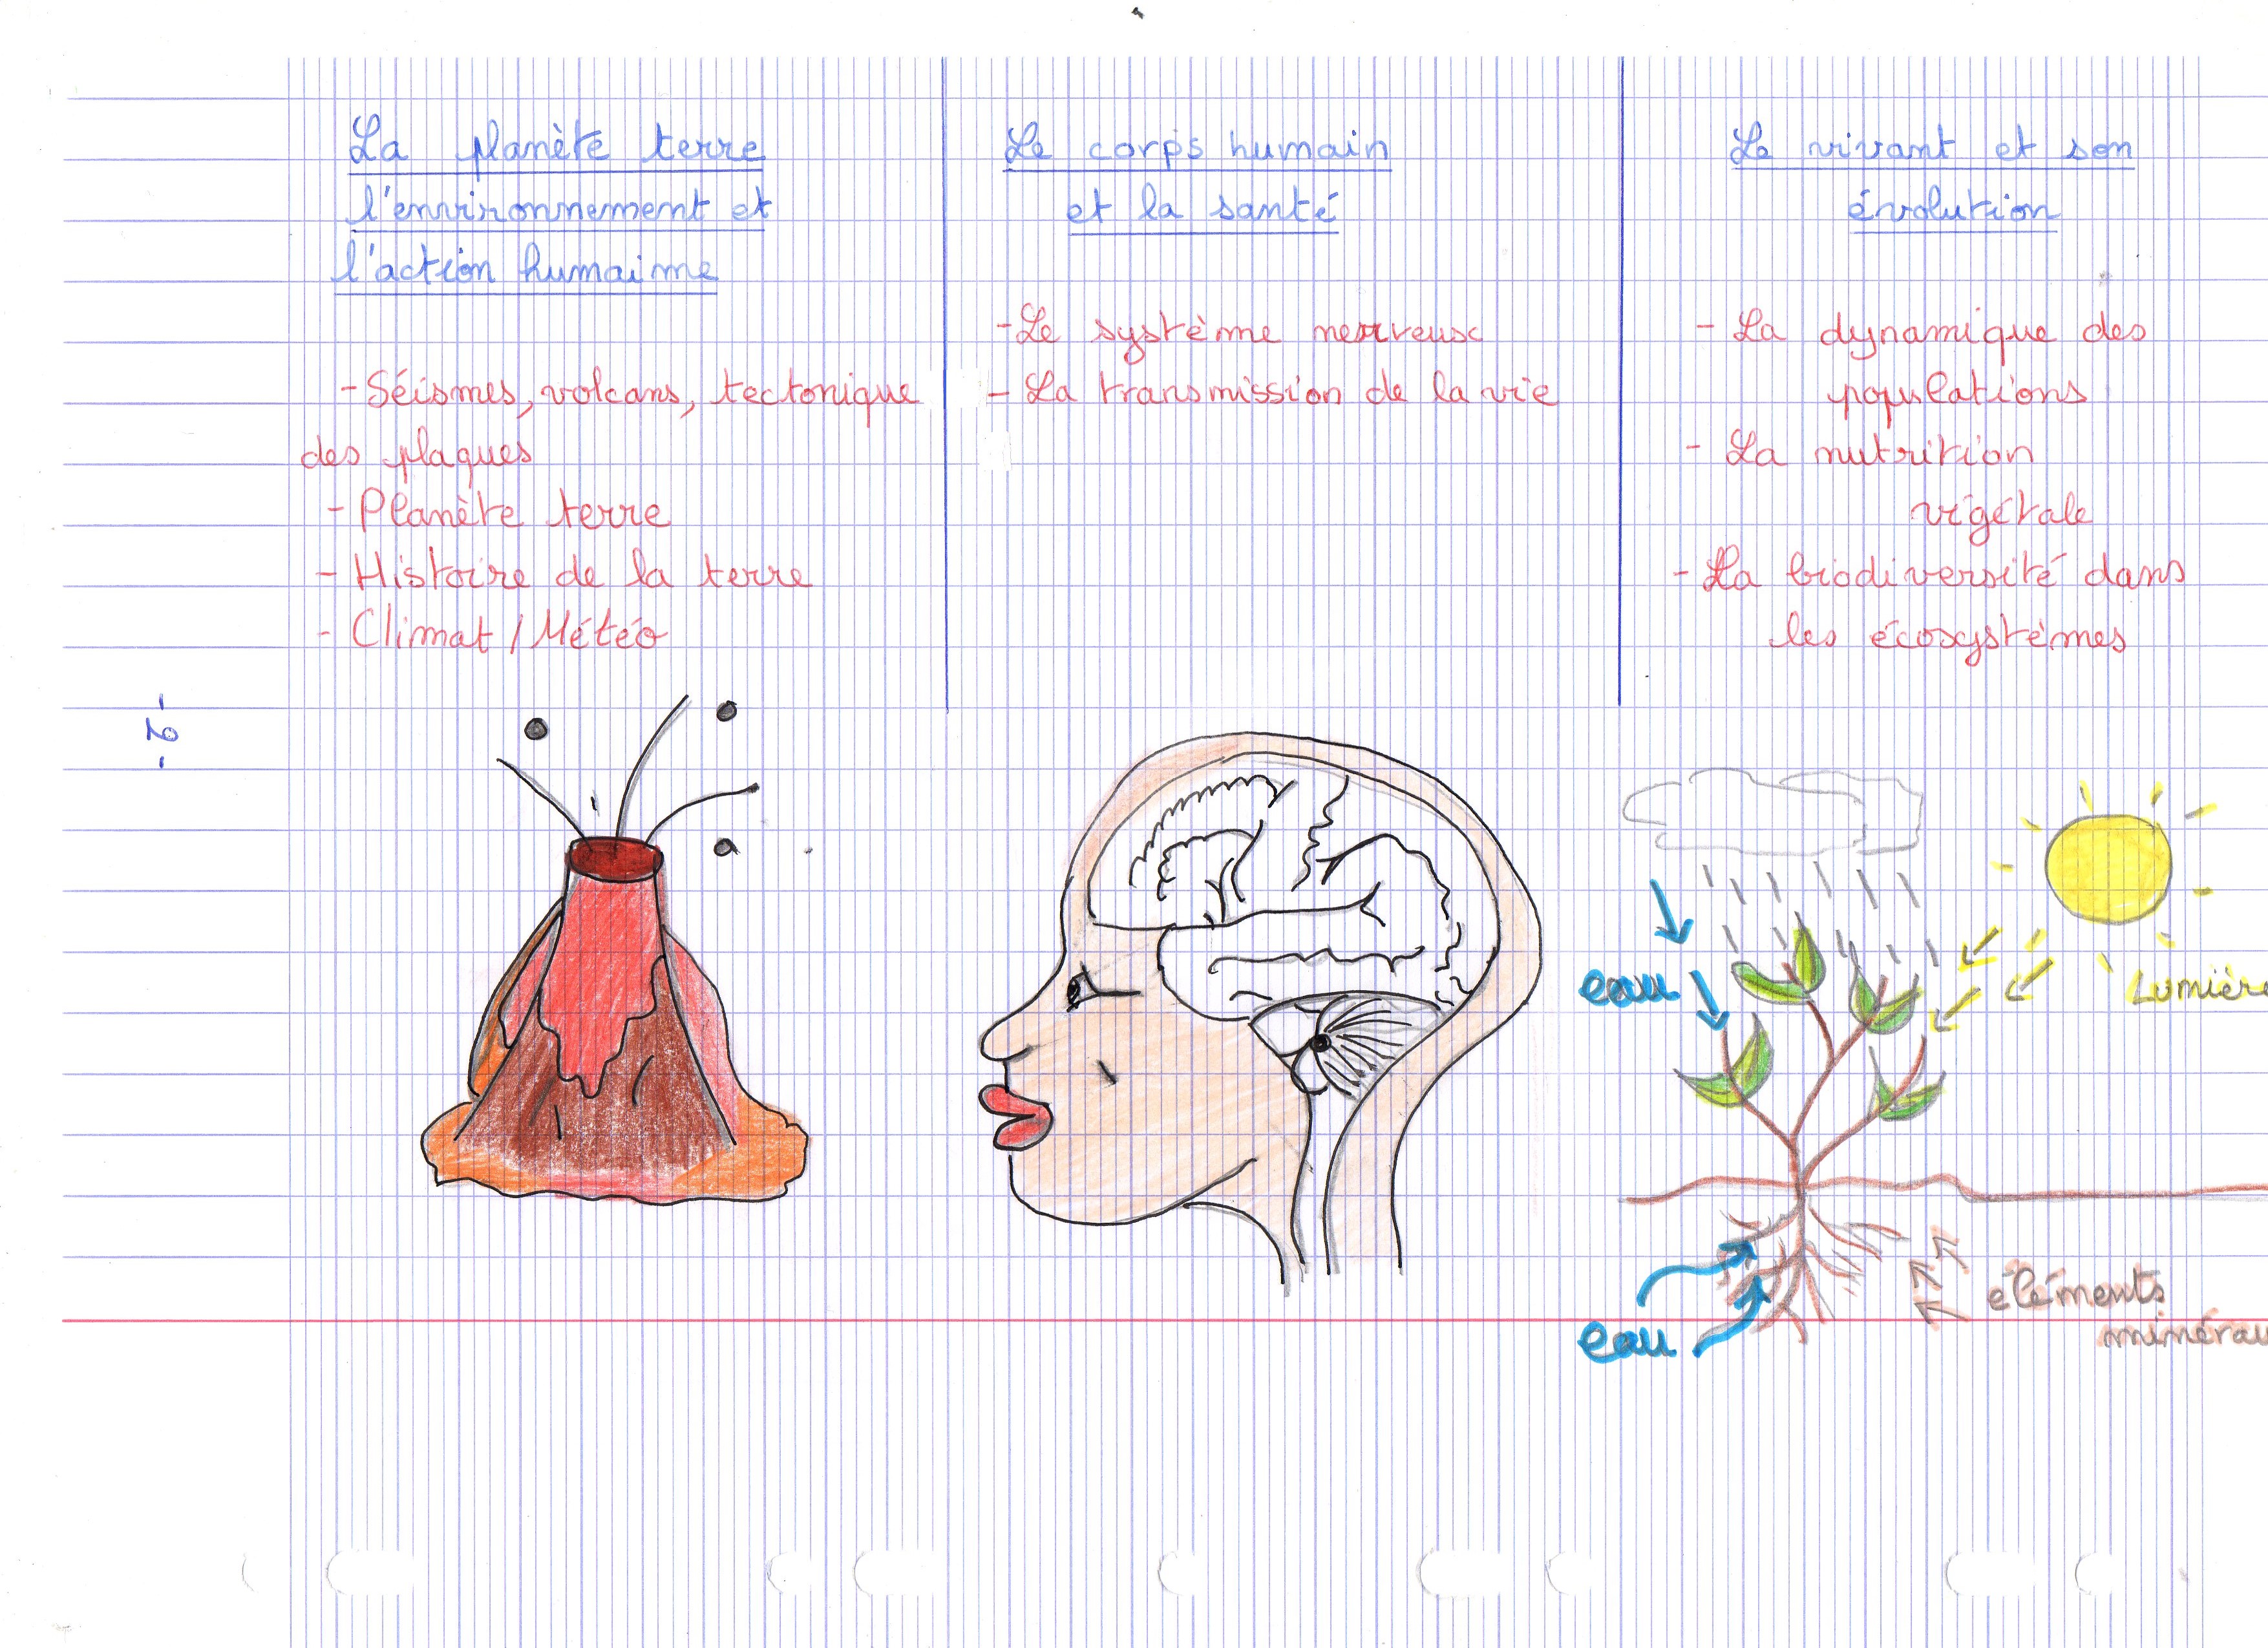 La planète terre
l'environnement et
l'action humaine
- Séismes, volcans, tectonique
des plaques
- Planète terre
- Histoire de la terre
- Climat / Météo
Le corps humain
et la santé
- Le système nerveux
- La transmission de la vie
Le vivant et son
évolution
- La dynamique des
populations
- La nutrition
végétale
- La biodiversité dans
les écosystèmes
eau
Lumière
eau
éléments
minérau